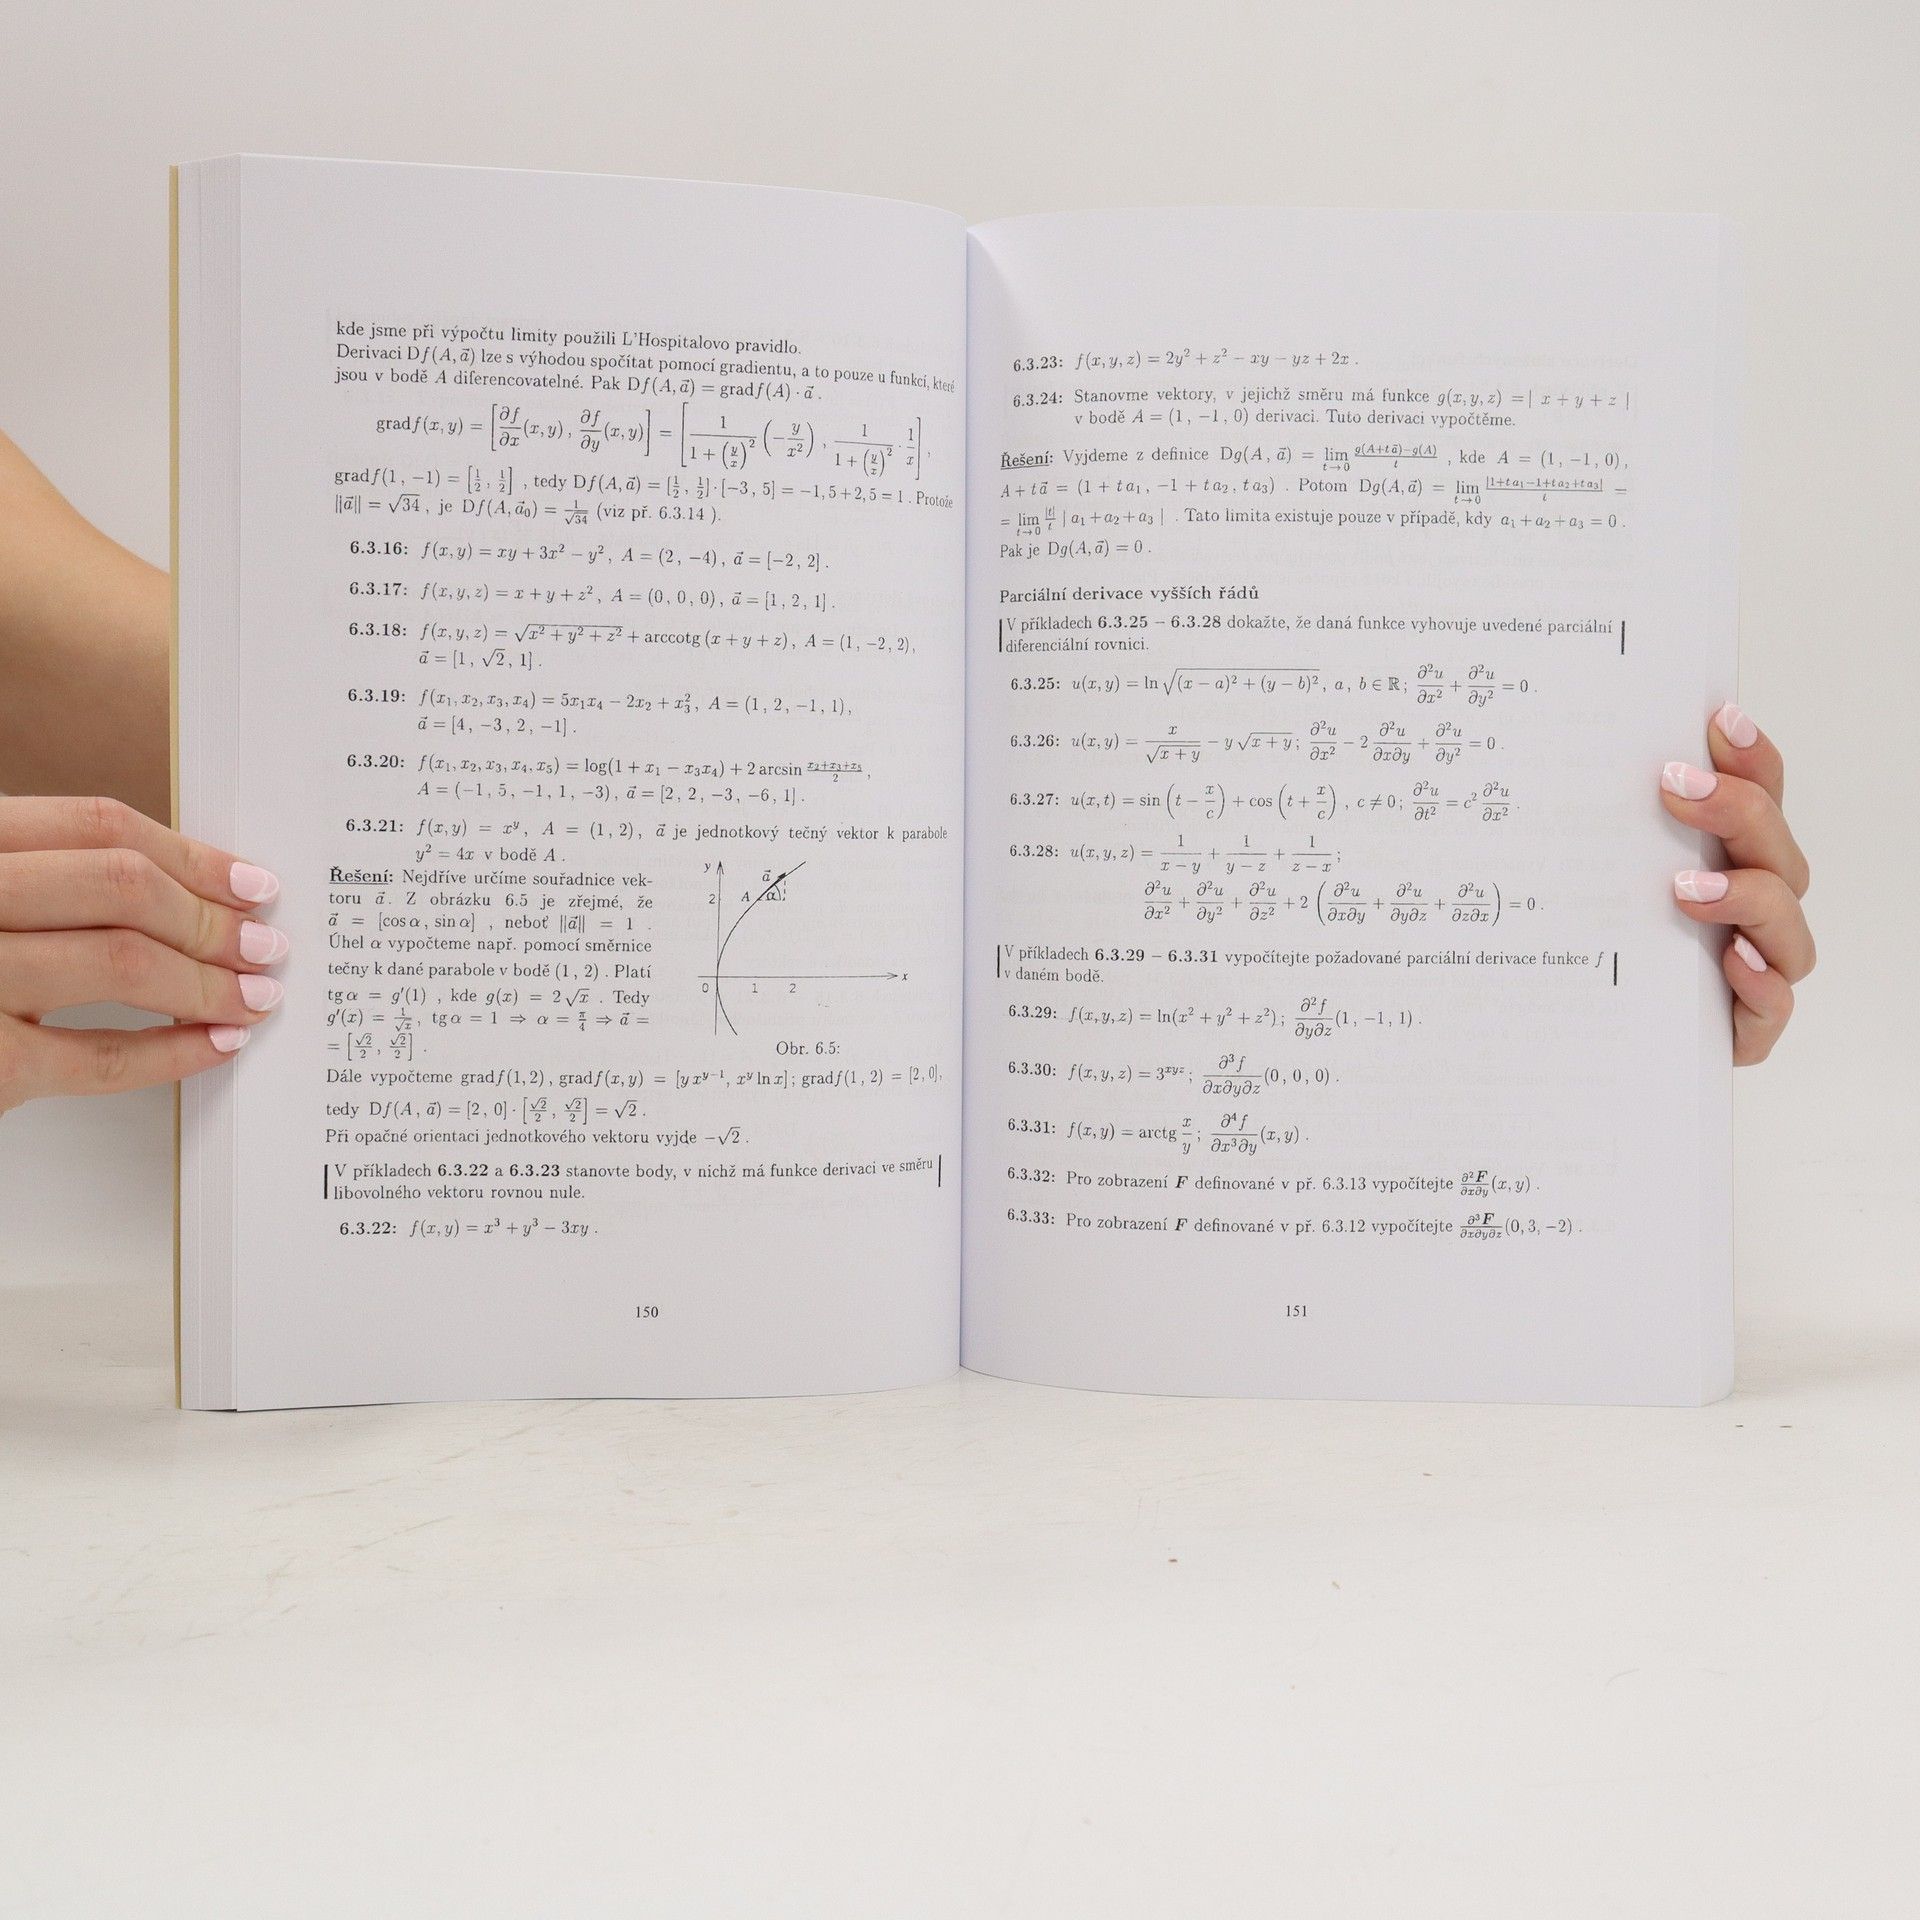 kde jsme při výpočtu limity použili L'Hospitalovo pravidlo.
Derivaci Df(A, a⃗) lze s výhodou spočítat pomocí gradientu, a to pouze u funkcí, které
jsou v bodě A diferencovatelné. Pak Df(A, a⃗) = gradf(A) · a⃗ .
gradf(x, y) = [∂f/∂x (x, y) , ∂f/∂y (x, y)] = [1/(1 + (y/x)²) (−y/x²) , 1/(1 + (y/x)²) · 1/x] ,
gradf(1, −1) = [1/2 , 1/2] , tedy Df(A, a⃗) = [1/2 , 1/2] · [−3, 5] = −1,5 + 2,5 = 1 . Protože
||a⃗|| = √34 , je Df(A, a⃗₀) = 1/√34 (viz př. 6.3.14 ).
6.3.16: f(x, y) = xy + 3x² − y² , A = (2 , −4) , a⃗ = [−2 , 2] .
6.3.17: f(x, y, z) = x + y + z² , A = (0 , 0 , 0) , a⃗ = [1 , 2 , 1] .
6.3.18: f(x, y, z) = √(x² + y² + z²) + arccotg (x + y + z) , A = (1 , −2 , 2) ,
a⃗ = [1 , √2 , 1] .
6.3.19: f(x₁, x₂, x₃, x₄) = 5x₁x₄ − 2x₂ + x₃² , A = (1 , 2 , −1 , 1) ,
a⃗ = [4 , −3 , 2 , −1] .
6.3.20: f(x₁, x₂, x₃, x₄, x₅) = log(1 + x₁ − x₃x₄) + 2 arcsin (x₂+x₃+x₅)/2 ,
A = (−1 , 5 , −1 , 1 , −3) , a⃗ = [2 , 2 , −3 , −6 , 1] .
6.3.21: f(x, y) = xʸ , A = (1, 2) , a⃗ je jednotkový tečný vektor k parabole
y² = 4x v bodě A .
Řešení: Nejdříve určíme souřadnice vek-
toru a⃗. Z obrázku 6.5 je zřejmé, že
a⃗ = [cos α, sin α] , neboť ||a⃗|| = 1 .
Úhel α vypočteme např. pomocí směrnice
tečny k dané parabole v bodě (1, 2) . Platí
tg α = g'(1) , kde g(x) = 2√x . Tedy
g'(x) = 1/√x , tg α = 1 ⇒ α = π/4 ⇒ a⃗ =
= [√2/2 , √2/2] .
y
a⃗
2
A
α
0
1
2
x
Obr. 6.5:
Dále vypočteme gradf(1, 2) , gradf(x, y) = [y xʸ⁻¹, xʸ ln x] ; gradf(1 , 2) = [2, 0],
tedy Df(A, a⃗) = [2 , 0] · [√2/2 , √2/2] = √2 .
Při opačné orientaci jednotkového vektoru vyjde −√2 .
V příkladech 6.3.22 a 6.3.23 stanovte body, v nichž má funkce derivaci ve směru
libovolného vektoru rovnou nule.
6.3.22: f(x, y) = x³ + y³ − 3xy .
150
6.3.23: f(x, y, z) = 2y² + z² − xy − yz + 2x .
6.3.24: Stanovme vektory, v jejichž směru má funkce g(x, y, z) = | x + y + z |
v bodě A = (1 , −1 , 0) derivaci. Tuto derivaci vypočtěme.
Řešení: Vyjdeme z definice Dg(A, a⃗) = lim t→0 (g(A+t a⃗)−g(A))/t , kde A = (1, −1, 0),
A + t a⃗ = (1 + t a₁ , −1 + t a₂ , t a₃) . Potom Dg(A, a⃗) = lim t→0 |1+t a₁−1+t a₂+t a₃|/t =
= lim t→0 |t|/t | a₁ + a₂ + a₃ | . Tato limita existuje pouze v případě, kdy a₁ + a₂ + a₃ = 0 .
Pak je Dg(A, a⃗) = 0 .
Parciální derivace vyšších řádů
V příkladech 6.3.25 − 6.3.28 dokažte, že daná funkce vyhovuje uvedené parciální
diferenciální rovnici.
6.3.25: u(x, y) = ln √((x − a)² + (y − b)²) , a, b ∈ ℝ ; ∂²u/∂x² + ∂²u/∂y² = 0 .
6.3.26: u(x, y) = x/√(x + y) − y √(x + y) ; ∂²u/∂x² − 2 ∂²u/∂x∂y + ∂²u/∂y² = 0 .
6.3.27: u(x, t) = sin (t − x/c) + cos (t + x/c) , c ≠ 0 ; ∂²u/∂t² = c² ∂²u/∂x² .
6.3.28: u(x, y, z) = 1/(x − y) + 1/(y − z) + 1/(z − x) ;
∂²u/∂x² + ∂²u/∂y² + ∂²u/∂z² + 2 (∂²u/∂x∂y + ∂²u/∂y∂z + ∂²u/∂z∂x) = 0 .
V příkladech 6.3.29 − 6.3.31 vypočítejte požadované parciální derivace funkce f
v daném bodě.
6.3.29: f(x, y, z) = ln(x² + y² + z²) ; ∂²f/∂y∂z (1 , −1 , 1) .
6.3.30: f(x, y, z) = 3ˣʸᶻ ; ∂³f/∂x∂y∂z (0 , 0 , 0) .
6.3.31: f(x, y) = arctg x/y ; ∂⁴f/∂x³∂y (x, y) .
6.3.32: Pro zobrazení F definované v př. 6.3.13 vypočítejte ∂²F/∂x∂y (x, y) .
6.3.33: Pro zobrazení F definované v př. 6.3.12 vypočítejte ∂³F/∂x∂y∂z (0, 3, −2) .
151